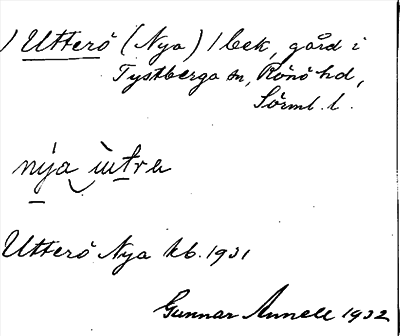 / Utterö (Nya) / bek, gård i
Tystberga sn, Rönö hd,
Sörml. l.
nya
Utterö Nya kb. 1931
Gunnar Annell 1932